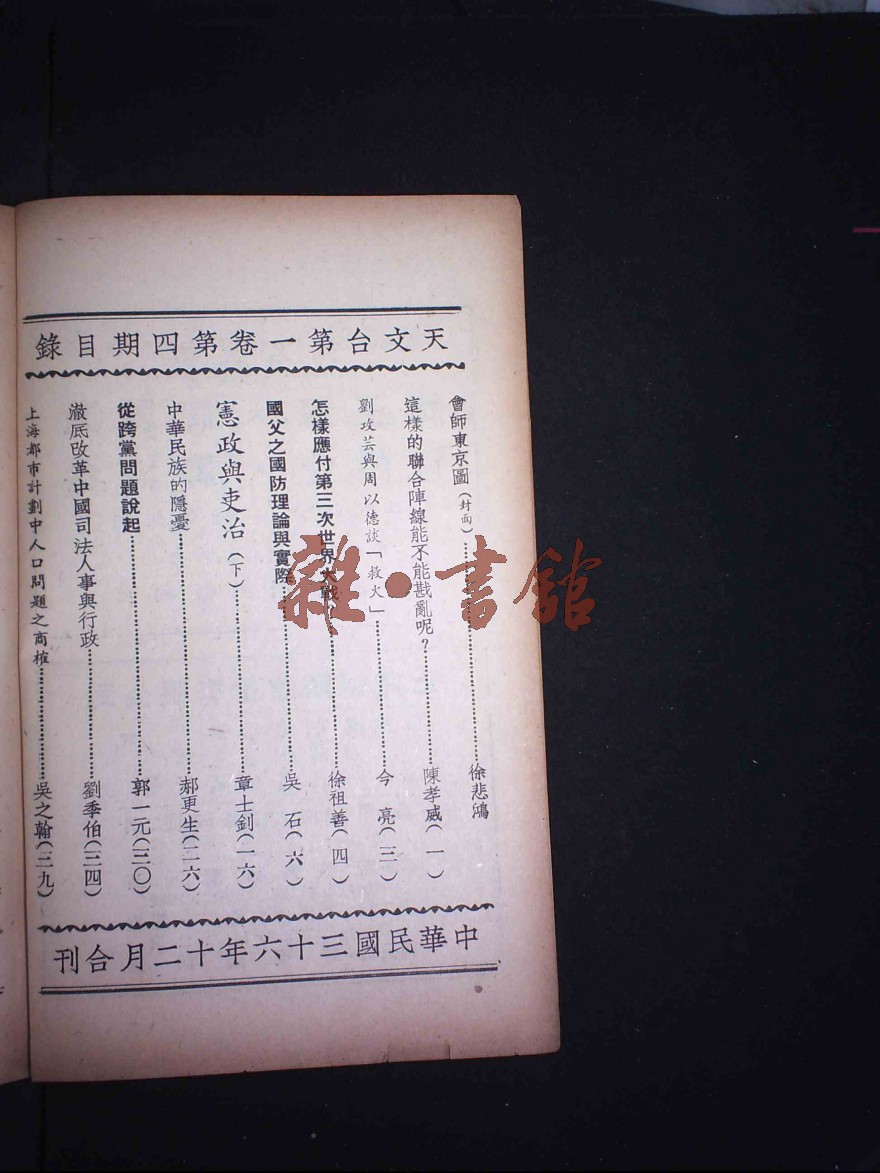 天文台第一卷第四期目錄
會師東京圖(封面)……徐悲鴻
這樣的聯合陣線能不能戡亂呢?……陳孝威(一)
劉攻芸與周以德談「救火」……今亮(三)
怎樣應付第三次世界大戰……徐祖善(四)
國父之國防理論與實際……吳石(六)
憲政與吏治(下)……章士釗(一六)
中華民族的隱憂……郝更生(二六)
從跨黨問題說起……郭一元(三〇)
澈底改革中國司法人事與行政……劉季伯(三四)
上海都市計劃中人口問題之商榷……吳之翰(三九)
中華民國三十六年十二月合刊
雜·書館